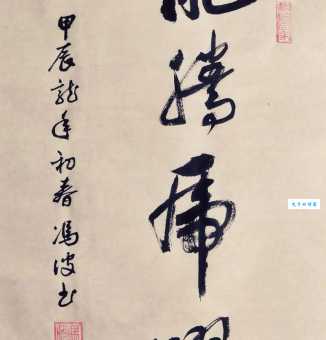 龍騰虎躍
甲辰龍年初春馮波書